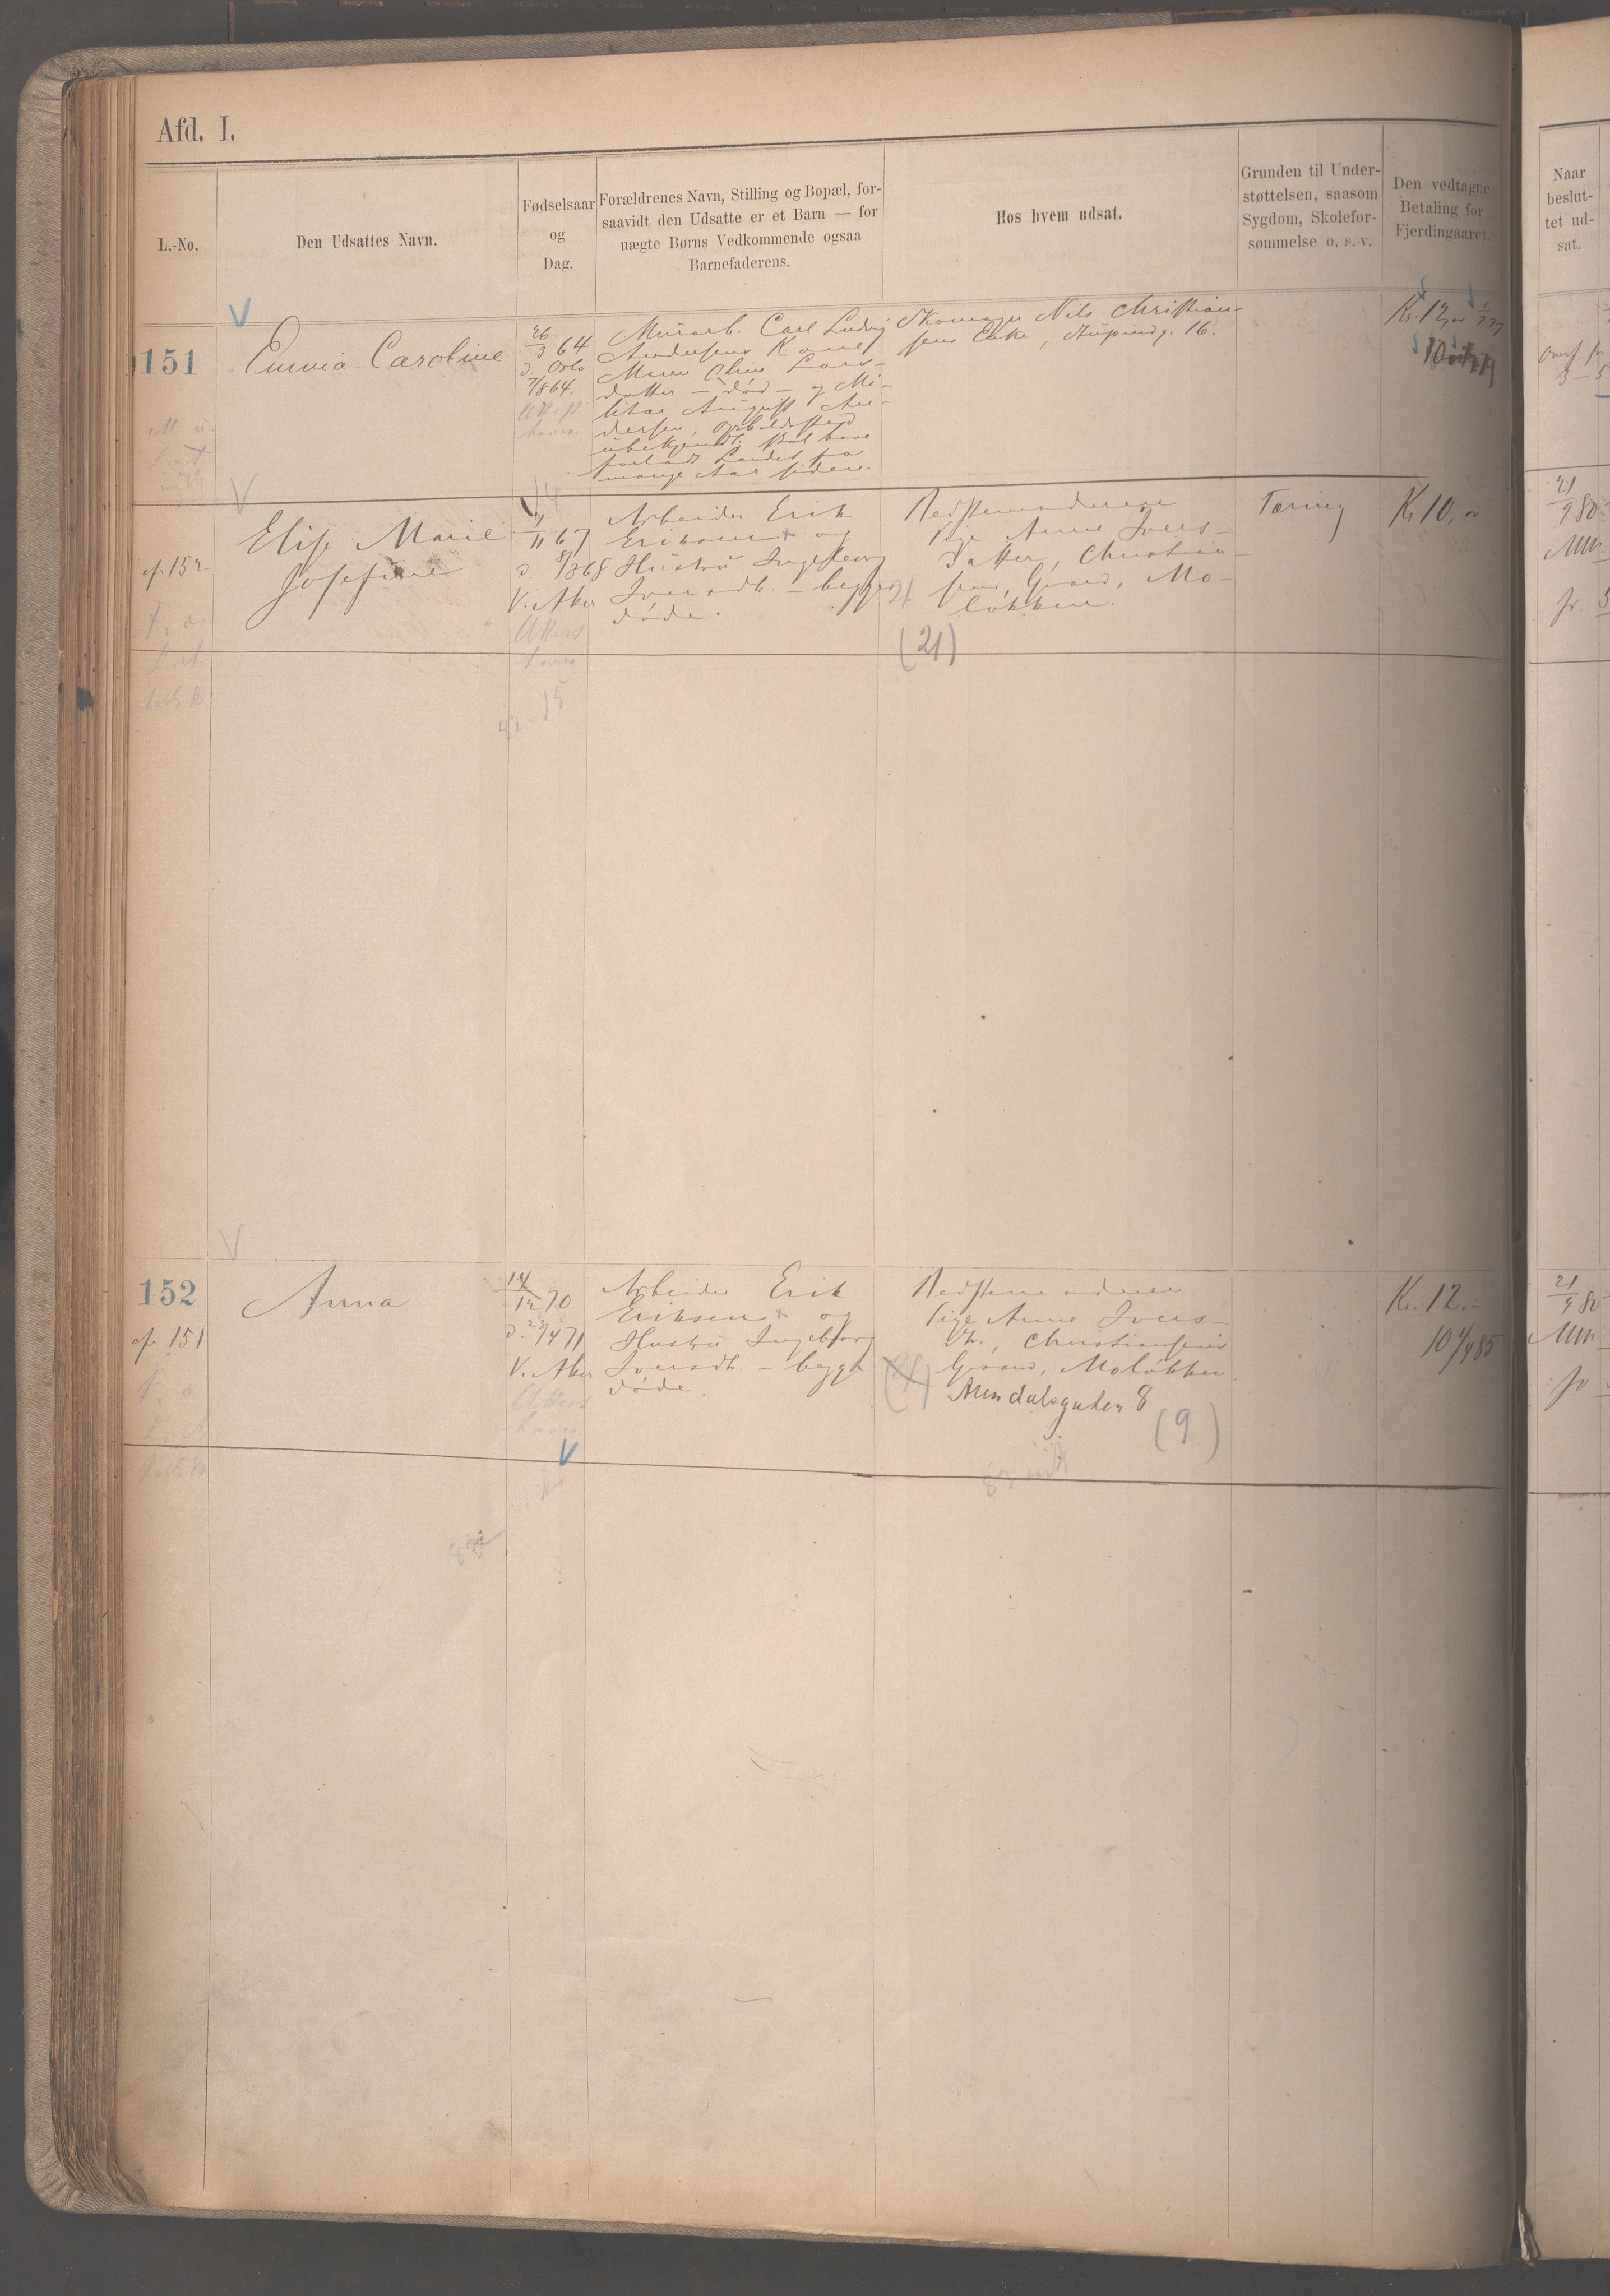 Afd. I.
L.-No.
Den Udsattes Navn.
Fødselsaar
og
Dag.
Forældrenes Navn, Stilling og Bopæl, for-
saavidt den Udsatte er et Barn — for
uægte Børns Vedkommende ogsaa
Barnefaderens.
Hos hvem udsat.
Grunden til Under-
støttelsen, saasom
Sygdom, Skolefor-
sømmelse o. s. v.
Den vedtagne
Betaling for
Fjerdingaaret.
Naar
beslut-
tet ud-
sat.
151
Emma Caroline
26/3 64
d. Oslo
7/8 64.
Murarb. Carl Ludvig
Andersens Kone
Maren Oline Lars-
datter — død — og Mi-
litær August An-
dersen, Opholdssted
ubekjendt, skal have
forladt Landet for
mange Aar siden.
Skomager Nils Christian-
sens Enke, 16.
Kr. 12,
10
cfr 152
Elise Marie
Josefine
11 67
d. 8/3 68
V. Aker
Arbeider Erik
Eriksen + og
Hustru Ingeborg
Iversdh. — begge
døde.
Pige Anne Ivers-
datter, Christian-
sens Gaard, Mo-
løkken.
(21)
Tæring
Kr 10,
21/9 80
152
cfr 151
Anna
14/12 70
d. 23/4 71
V. Aker
Arbeider Erik
Eriksen + og
Hustru Ingeborg
Iversdh. — begge
døde.
Pige Anne Ivers-
dh., Christiansens
Gaard, Moløkken
Arendalsgaten 8
(9)
Kr. 12.-
10 1/4 85
21/9 80